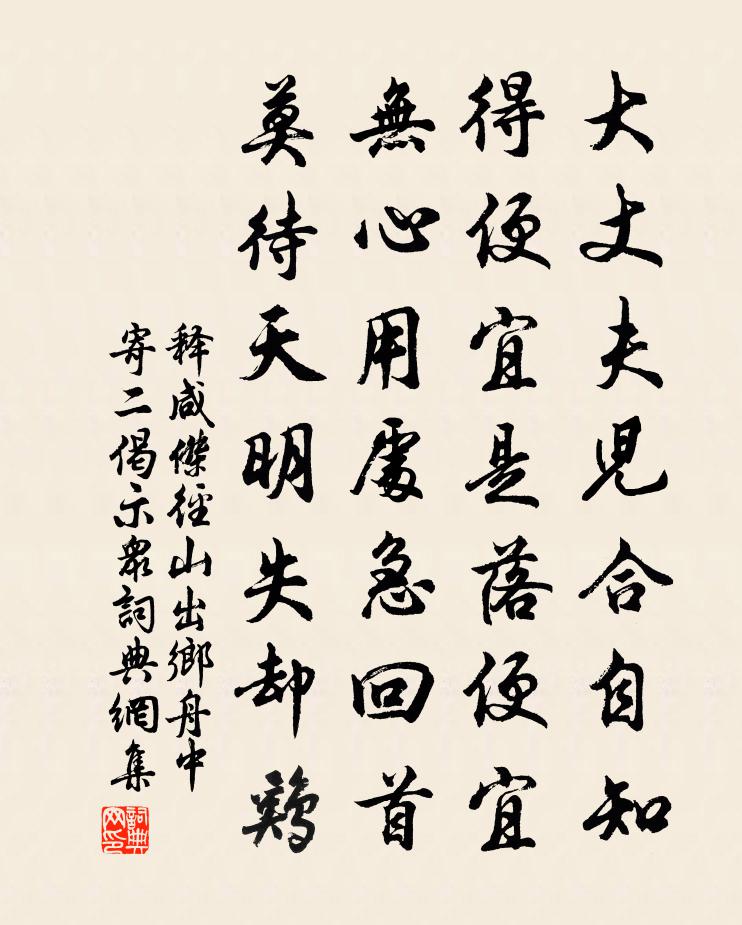 大丈夫兒合自知
得便宜是落便宜
無心用處急回首
莫待天明失却鷄
释咸傑徑山出鄉舟中
寄二偈示衆詞典網集
詞典网印